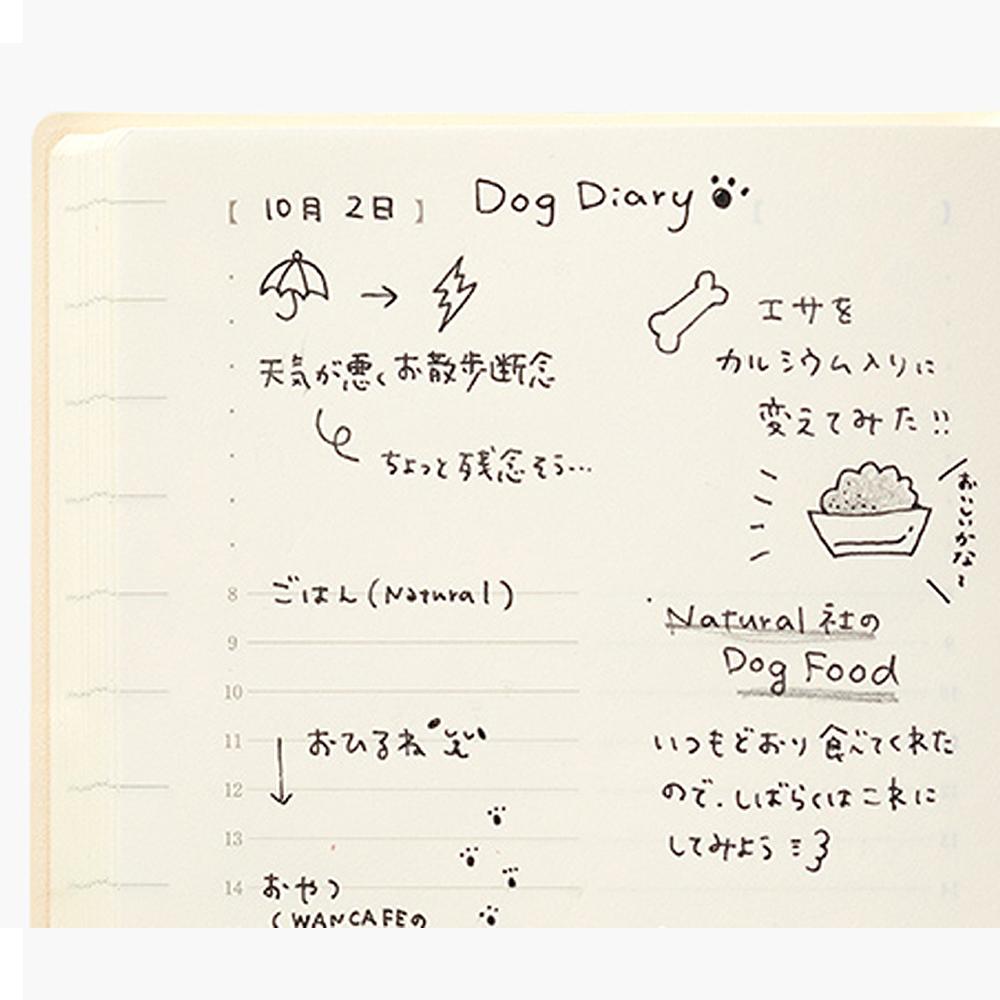 【 10月 2日 】 Dog Diary
天気が悪くお散歩断念
ちょっと残念そう…
8 ごはん(Natural)
9
10
11 おひるね
12
13
14 おやつ
(WANCAFEの
エサを
カルシウム入りに
変えてみた!!
おいしいかな~
Natural 社の
Dog Food
いつもどおり食べてくれた
ので.しばらくはこれに
してみよう